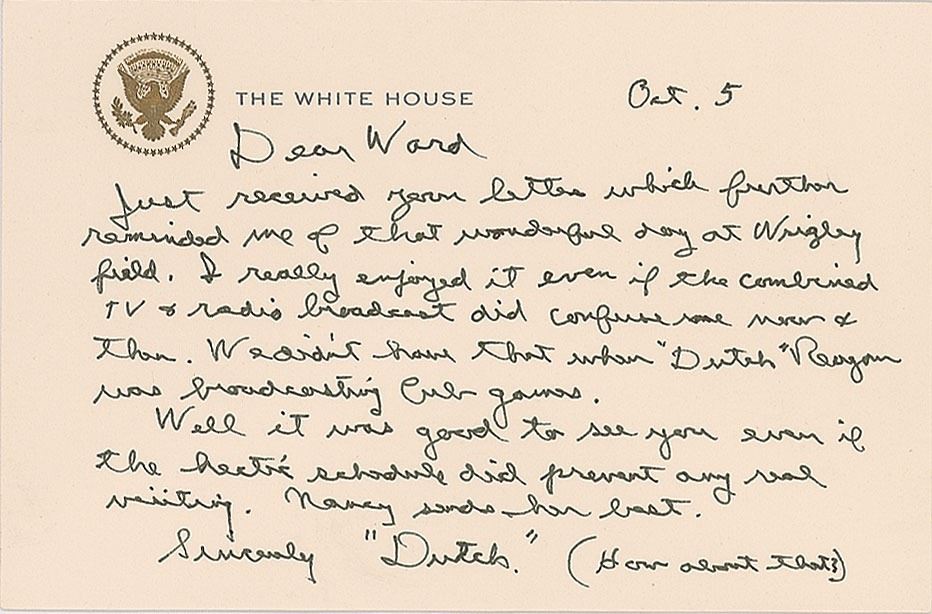 THE WHITE HOUSE
Oct. 5
Dear Ward
Just received your letter which further
reminded me of that wonderful day at Wrigley
field. I really enjoyed it even if the combined
TV & radio broadcast did confuse me now &
then. We didn't have that when "Dutch" Reagan
was broadcasting Cub games.
Well it was good to see you even if
the hectic schedule did prevent any real
visiting. Nancy sends her best.
Sincerely "Dutch." (How about that?)